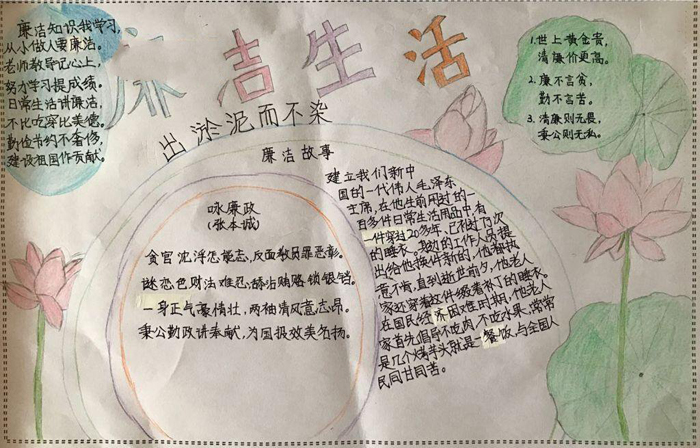 廉洁知识我学习,
从小做人要廉洁。
老师教导记心上,
努力学习提成绩。
日常生活讲廉洁,
不比吃穿比美德。
勤俭节约不奢侈,
建设祖国作贡献。
洁生活
出淤泥而不染
1.世上黄金贵,
清廉价更高。
2.廉不言贫,
勤不言苦。
3.清廉则无畏,
秉公则无私。
廉洁故事
咏廉政
(张本城)
贪官沉浮怎堪志,反面教员罪恶彰。
谜恋色财法难忍,舔沾贿赂锁银铛。
一身正气豪情壮,两袖清风意志昂。
秉公勤政讲奉献,为国报效美名扬。
建立我们新中
国的一代伟人毛泽东
主席,在他生前用过的一
百多件日常生活用品中,有
一件穿过20多年,已补过
的睡衣。身边的工作人员提
出给他换件新的,他都执
意不肯,直到逝世前夕,他老人
家还穿着这件缀着补丁的睡衣。
在国民经济困难时期,他老人
家首先倡导不吃肉,不吃水果,常常
是几个烤芋头就是一餐饭,与全国人
民同甘同苦。